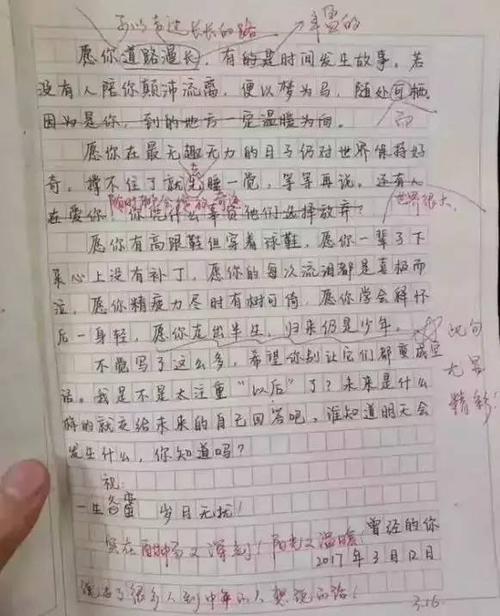 丰富的
愿你道路漫长，有的是时间发生故事。若
没有人陪你颠沛流离，便以梦为马，随处可栖。
因为是你，到的地方一定温暖为向。
愿你在最无趣无力的日子仍对世界保持好
奇。撑不住了就先睡一觉，等等再说。还有人
在爱你，你凭什么辜负他们选择放弃？
世界很大
愿你有高跟鞋但穿着球鞋，愿你一辈子下
来心上没有补丁，愿你的每次流泪都是喜极而
泣，愿你精疲力尽时有树可倚，愿你学会释怀
后一身轻，愿你走出半生，归来仍是少年。
此句
尤显
精彩
不觉写了这么多，希望你别让它们都变成空
话。我是不是太注重“以后”了？未来是什么
样的就交给未来的自己回答吧，谁知道明天会
发生什么，你知道吗？
祝：
岁月无扰！
曾经的你
2017年3月12日
说出了很多人到中年的人想说的话！
3.16.